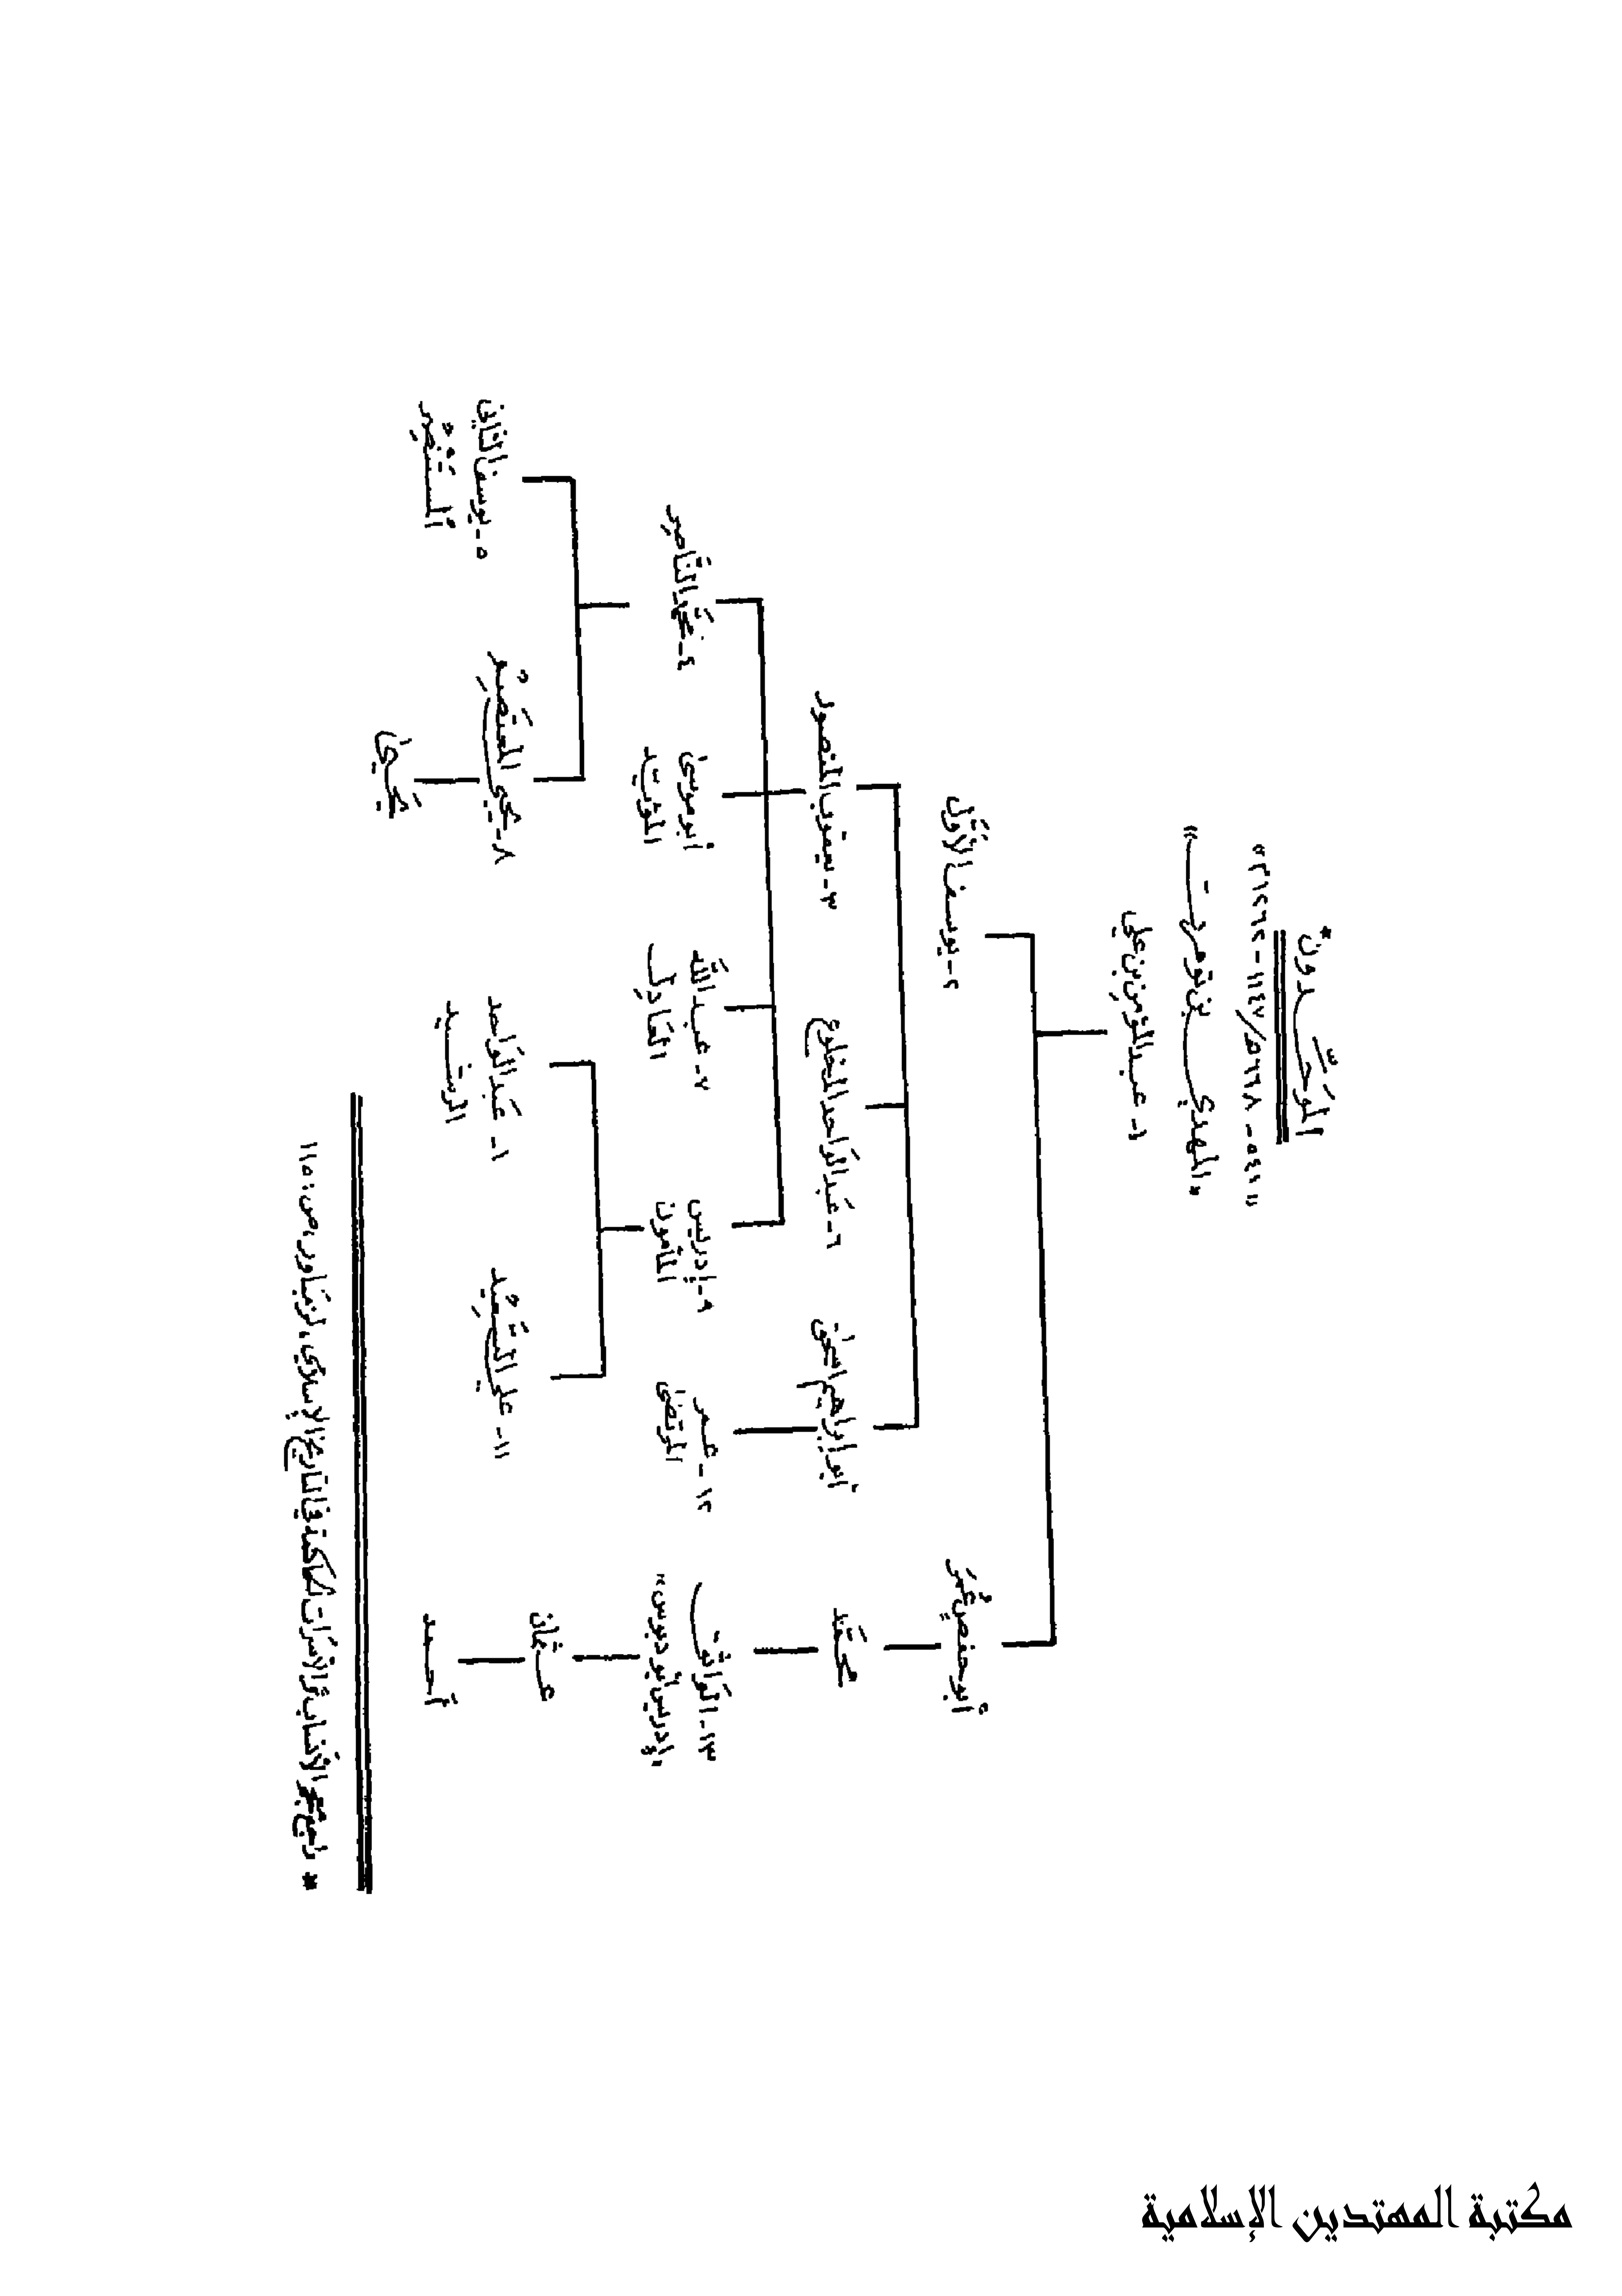 الموَحِّدون*
"٥٤١ - ٦٦٨هـ/١١٤٧ - ١٢٦٩م"
"المهدي بن تومرت"
١- عبد المؤمن بن علي
٢- يوسف الأَوَّل
أبو حفص عُمَر
٣- يعقوب المنصور
٦- عَبد الوَاحد المخلوع
أبو إبراهيم اسحق
محمَّد
٤- محَمَّد النَّاصِر
أبو موسى
المؤيد
٧- عَبد اللَّه
العَادِل
٩- إدريس
المأمون
١٢- عمر
المرتضى
١٣- الوَاثق
"إدريس أبو دبوس"
٥- يوسف الثاني
المُستَنْصِر
٨- يَحيى المعتَصِمْ
١- عَبد الوَاحد
الرشيد
١١- علي السَّعِيْد
عثمان
يَحيىٰ
أحمد
* راجع معجم الأنساب والأسرات الحاكمة في التاريخ الإسلامي، لزمباور، ص: ١١٥
مكتبة المهتدين الإسلامية